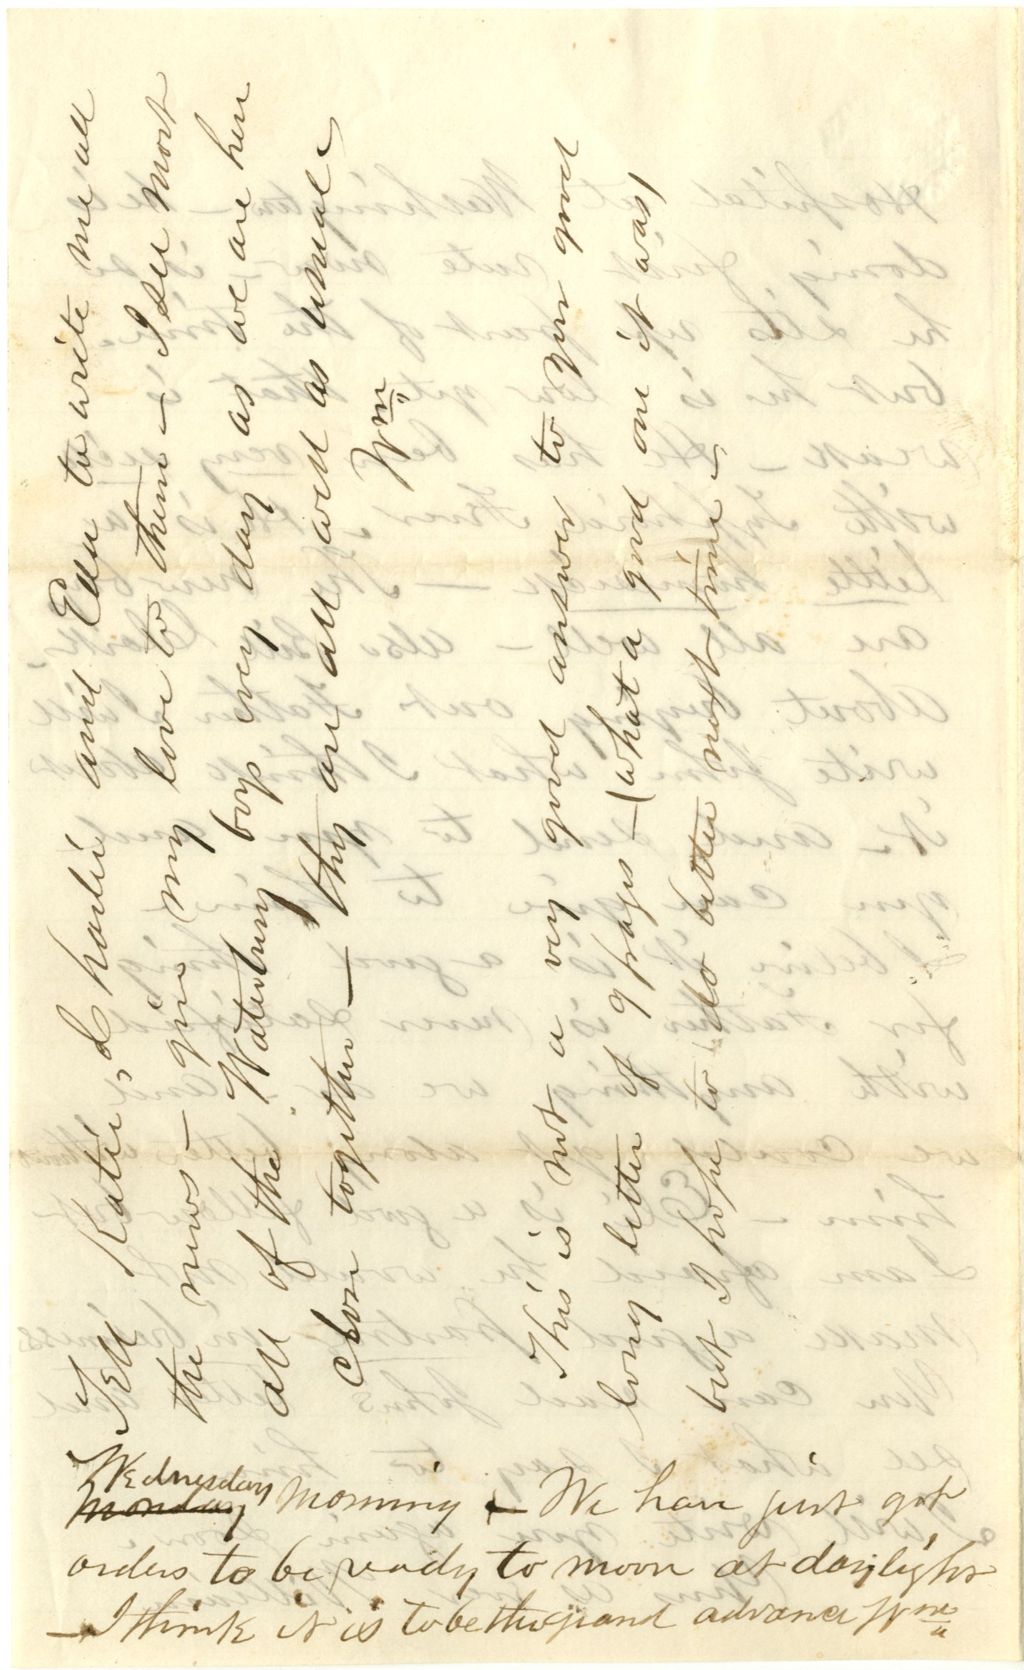 Tell Katie, Charlie and Ella to write me all
the news - give my love to them - I see most
all of the Waterbury boys every day as we are here
close together - they are all well as usual -
Wm
This is not a very good answer to your good
long letter of 9 pages - (what a good one it was)
but I hope to do better next time -
Wednesday
Monday Morning - We have just got
orders to be ready to move at daylight
- I think it is to be the grand advance Wm